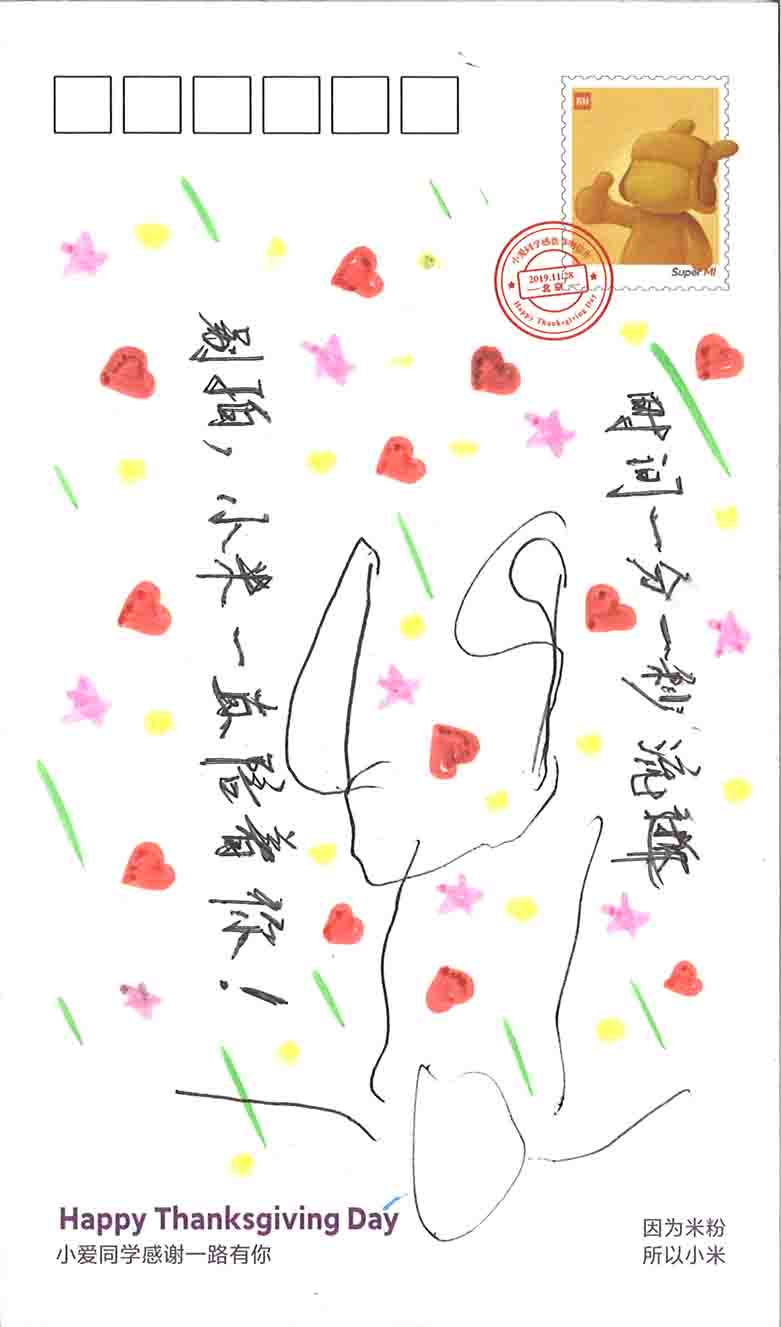 MI
Super MI
2019.11.28
北京
Happy Thanksgiving Day
时间一分一秒流逝
别怕，小米一直陪着你！
Happy Thanksgiving Day
小爱同学感谢一路有你
因为米粉
所以小米